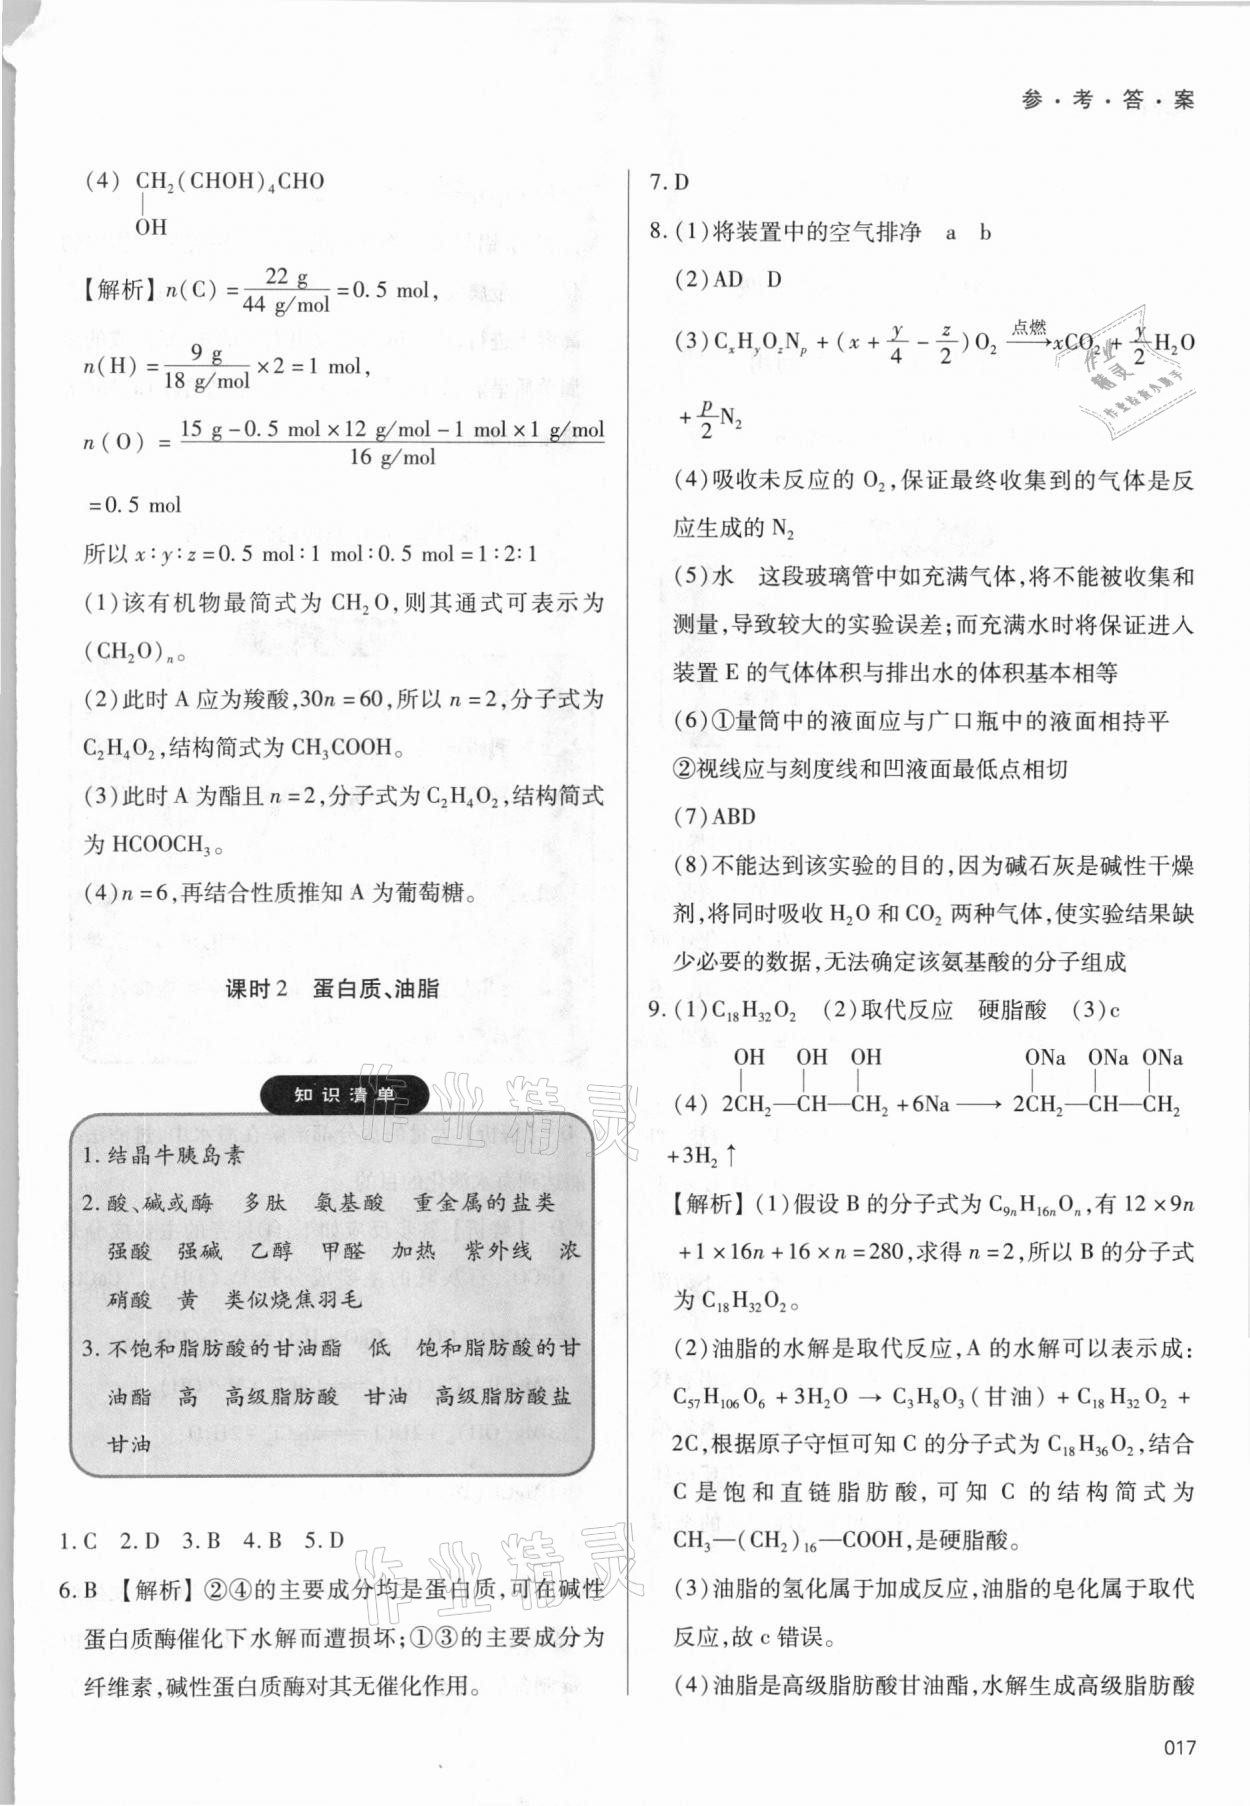 参·考·答·案
(4) CH₂(CHOH)₄CHO
|
OH
【解析】n(C)=22 g/44 g/mol=0.5 mol,
n(H)=9 g/18 g/mol×2=1 mol,
n(O)=15 g-0.5 mol×12 g/mol-1 mol×1 g/mol/16 g/mol
=0.5 mol
所以 x∶y∶z=0.5 mol∶1 mol∶0.5 mol=1∶2∶1
(1)该有机物最简式为 CH₂O,则其通式可表示为
(CH₂O)ₙ。
(2)此时 A 应为羧酸,30n=60,所以 n=2,分子式为
C₂H₄O₂,结构简式为 CH₃COOH。
(3)此时 A 为酯且 n=2,分子式为 C₂H₄O₂,结构简式
为 HCOOCH₃。
(4)n=6,再结合性质推知 A 为葡萄糖。
课时2 蛋白质、油脂
知识清单
1. 结晶牛胰岛素
2. 酸、碱或酶 多肽 氨基酸 重金属的盐类
强酸 强碱 乙醇 甲醛 加热 紫外线 浓
硝酸 黄 类似烧焦羽毛
3. 不饱和脂肪酸的甘油酯 低 饱和脂肪酸的甘
油酯 高 高级脂肪酸 甘油 高级脂肪酸盐
甘油
1. C 2. D 3. B 4. B 5. D
6. B 【解析】②④的主要成分均是蛋白质,可在碱性
蛋白质酶催化下水解而遭损坏;①③的主要成分为
纤维素,碱性蛋白质酶对其无催化作用。
7. D
8. (1)将装置中的空气排净 a b
(2)AD D
(3)CₓHᵧO_zNₚ+(x+y/4-z/2)O₂ 点燃→ xCO₂+y/2H₂O
+p/2N₂
(4)吸收未反应的 O₂,保证最终收集到的气体是反
应生成的 N₂
(5)水 这段玻璃管中如充满气体,将不能被收集和
测量,导致较大的实验误差;而充满水时将保证进入
装置 E 的气体体积与排出水的体积基本相等
(6)①量筒中的液面应与广口瓶中的液面相持平
②视线应与刻度线和凹液面最低点相切
(7)ABD
(8)不能达到该实验的目的,因为碱石灰是碱性干燥
剂,将同时吸收 H₂O 和 CO₂ 两种气体,使实验结果缺
少必要的数据,无法确定该氨基酸的分子组成
9. (1)C₁₈H₃₂O₂ (2)取代反应 硬脂酸 (3)c
OH OH OH ONa ONa ONa
| | | | | |
(4) 2CH₂—CH—CH₂+6Na→2CH₂—CH—CH₂
+3H₂↑
【解析】(1)假设 B 的分子式为 C₉ₙH₁₆ₙOₙ,有 12×9n
+1×16n+16×n=280,求得 n=2,所以 B 的分子式
为 C₁₈H₃₂O₂。
(2)油脂的水解是取代反应,A 的水解可以表示成:
C₅₇H₁₀₆O₆+3H₂O→C₃H₈O₃(甘油)+C₁₈H₃₂O₂+
2C,根据原子守恒可知 C 的分子式为 C₁₈H₃₆O₂,结合
C 是饱和直链脂肪酸,可知 C 的结构简式为
CH₃—(CH₂)₁₆—COOH,是硬脂酸。
(3)油脂的氢化属于加成反应,油脂的皂化属于取代
反应,故 c 错误。
(4)油脂是高级脂肪酸甘油酯,水解生成高级脂肪酸
017
作业精灵
作业精灵
作业
精灵
作业检查小助手